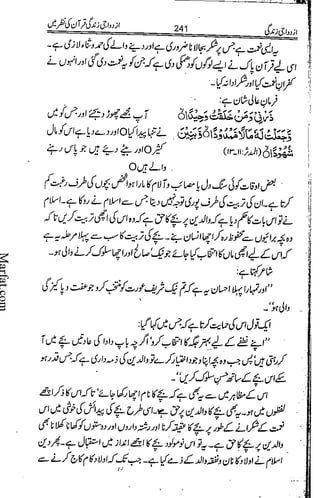 ازدواجی زندگی 241 ازدواجی زندگی قرآن کی نظر میں
یہ ایسی نعمت ہے جس پر شکر بجالانا ضروری ہے اور دینے والے کی حمد و ثنا لازمی ہے۔
اسی لیے قرآن پاک نے ایسے لوگوں کو دھمکی دی ہے کہ جن کو یہ نعمت دی گئی اور انہوں نے
کفران نعمت کیا اور شکر ادا نہ کیا۔
فرمانِ عالی شان ہے:
ذَرْنِي وَمَنْ خَلَقْتُ وَحِيْدًا
وَّجَعَلْتُ لَهٗ مَالًا مَّمْدُوْدًا وَّبَنِيْنَ
شُهُوْدًا (المدثر: ۱۱۔۱۳)
آپ مجھے چھوڑ دیجئے اور جس کو میں
نے تنہا پیدا کیا اور دے دیا ہے اس کو مال
کثیر اور بیٹے دیئے ہیں جو پاس رہنے
والے ہیں
بعض اوقات کوئی سنگ دل یا مصائب و آلام کا مارا ہوا شخص بچوں کی طرف رغبت کم
کرتا ہے۔ ان کی تربیت کی طرف پوری توجہ نہیں دیتا جس سے اسلام نے روکا ہے۔ اسلام
نے تو اس بات کا حکم دیا ہے کہ والدین پر بچے کا حق ہے کہ وہ اس کی اچھی تربیت کریں تاکہ
وہ بچہ برائیوں سے محفوظ رہ کر اچھا انسان بنے۔ بچے کی تربیت کا سب سے پہلا مرحلہ یہ ہے
کہ اس کے لیے اچھی ماں کا انتخاب کیا جائے جو نیک صالح اور اچھا سلوک کرنے والی ہو۔
شاعر کہتا ہے:
”اور تمہارا پہلا احسان یہ ہے کہ تم نیک شریف عورت کو منتخب کرو جو عفت و پاکیزگی
والی ہو“۔
ایک قول اس کی حمایت کرتا ہے کہ جس میں کہا گیا:
”اپنے نطفے کے لیے بہتر جگہ کا انتخاب کرو“ اگرچہ باپ دادا کی عادتیں بچے میں آ
کر رہتی ہیں پس جب وہ بچہ اپنا وجود اختیار کر لے تو والدین کی ذمہ داری ہے کہ جس قدر ہو
سکے اس بچے کے ساتھ حسن سلوک کریں“۔
اس کے مظاہر میں سے یہ بھی ہے کہ بچے کا نام اچھا رکھا جائے‘ تاکہ اس کا ذکر اچھے
لفظوں میں ہو۔ یہ بھی بچے کا والدین پر حق ہے۔ اسی طرح بچے کی پیدائش کی خوشی میں اس
نعمت کے شکرانے کے طور پر بچے کا عقیقہ کرنا اور رشتہ داروں اور دوستوں کو کھانا کھلانا بھی
والدین پر بچے کا حق ہے۔ یہ تو اس نومولود بچے کا اچھے انداز میں استقبال ہے۔ پھر دین
اسلام نے اولاد کا نان و نفقہ والد کے ذمے کیا ہے۔ جب تک کہ اولاد کام کاج کرنے سے
Marfat.com